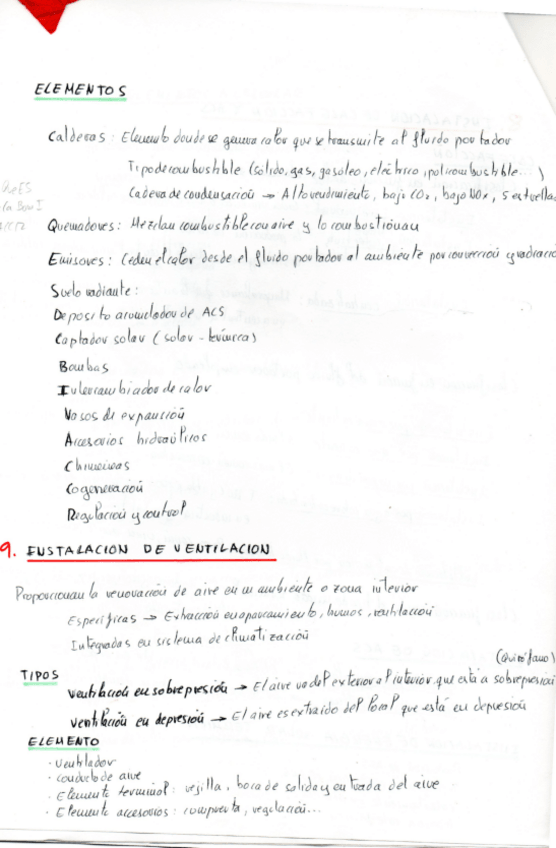 ELEMENTOS
Calderas: Elemento donde se genera calor que se transmite al fluido portador
Tipo de combustible (sólido, gas, gasoleo, eléctrico, policombustible...)
Caldera de condensación → Alto rendimiento, bajo CO2, bajo NOx, 5 estrellas
Quemadores: Mezclan combustible con aire y lo combustionan
Emisores: Ceden el calor desde el fluido portador al ambiente por convección y radiació
Suelo radiante:
Deposito acumulador de ACS
Captador solar (solar - térmica)
Bombas
Intercambiador de calor
Vasos de expansión
Accesorios hidraúlicos
Chimeneas
Cogeneración
Regulación y control
9. INSTALACION DE VENTILACION
Proporcionan la renovación de aire en un ambiente o zona interior
Específicas → Extracción en aparcamiento, humos, ventilación
Integradas en sistema de climatización
(Quirófano)
TIPOS
ventilación en sobrepresión → El aire va del exterior al interior que está a sobrepresión
ventilación en depresión → El aire es extraído del local que está en depresión
ELEMENTO
· Ventilador
· conducto de aire
· Elemento terminal: rejilla, boca de salida y entrada del aire
· Elemento accesorios: compuerta, regulación...